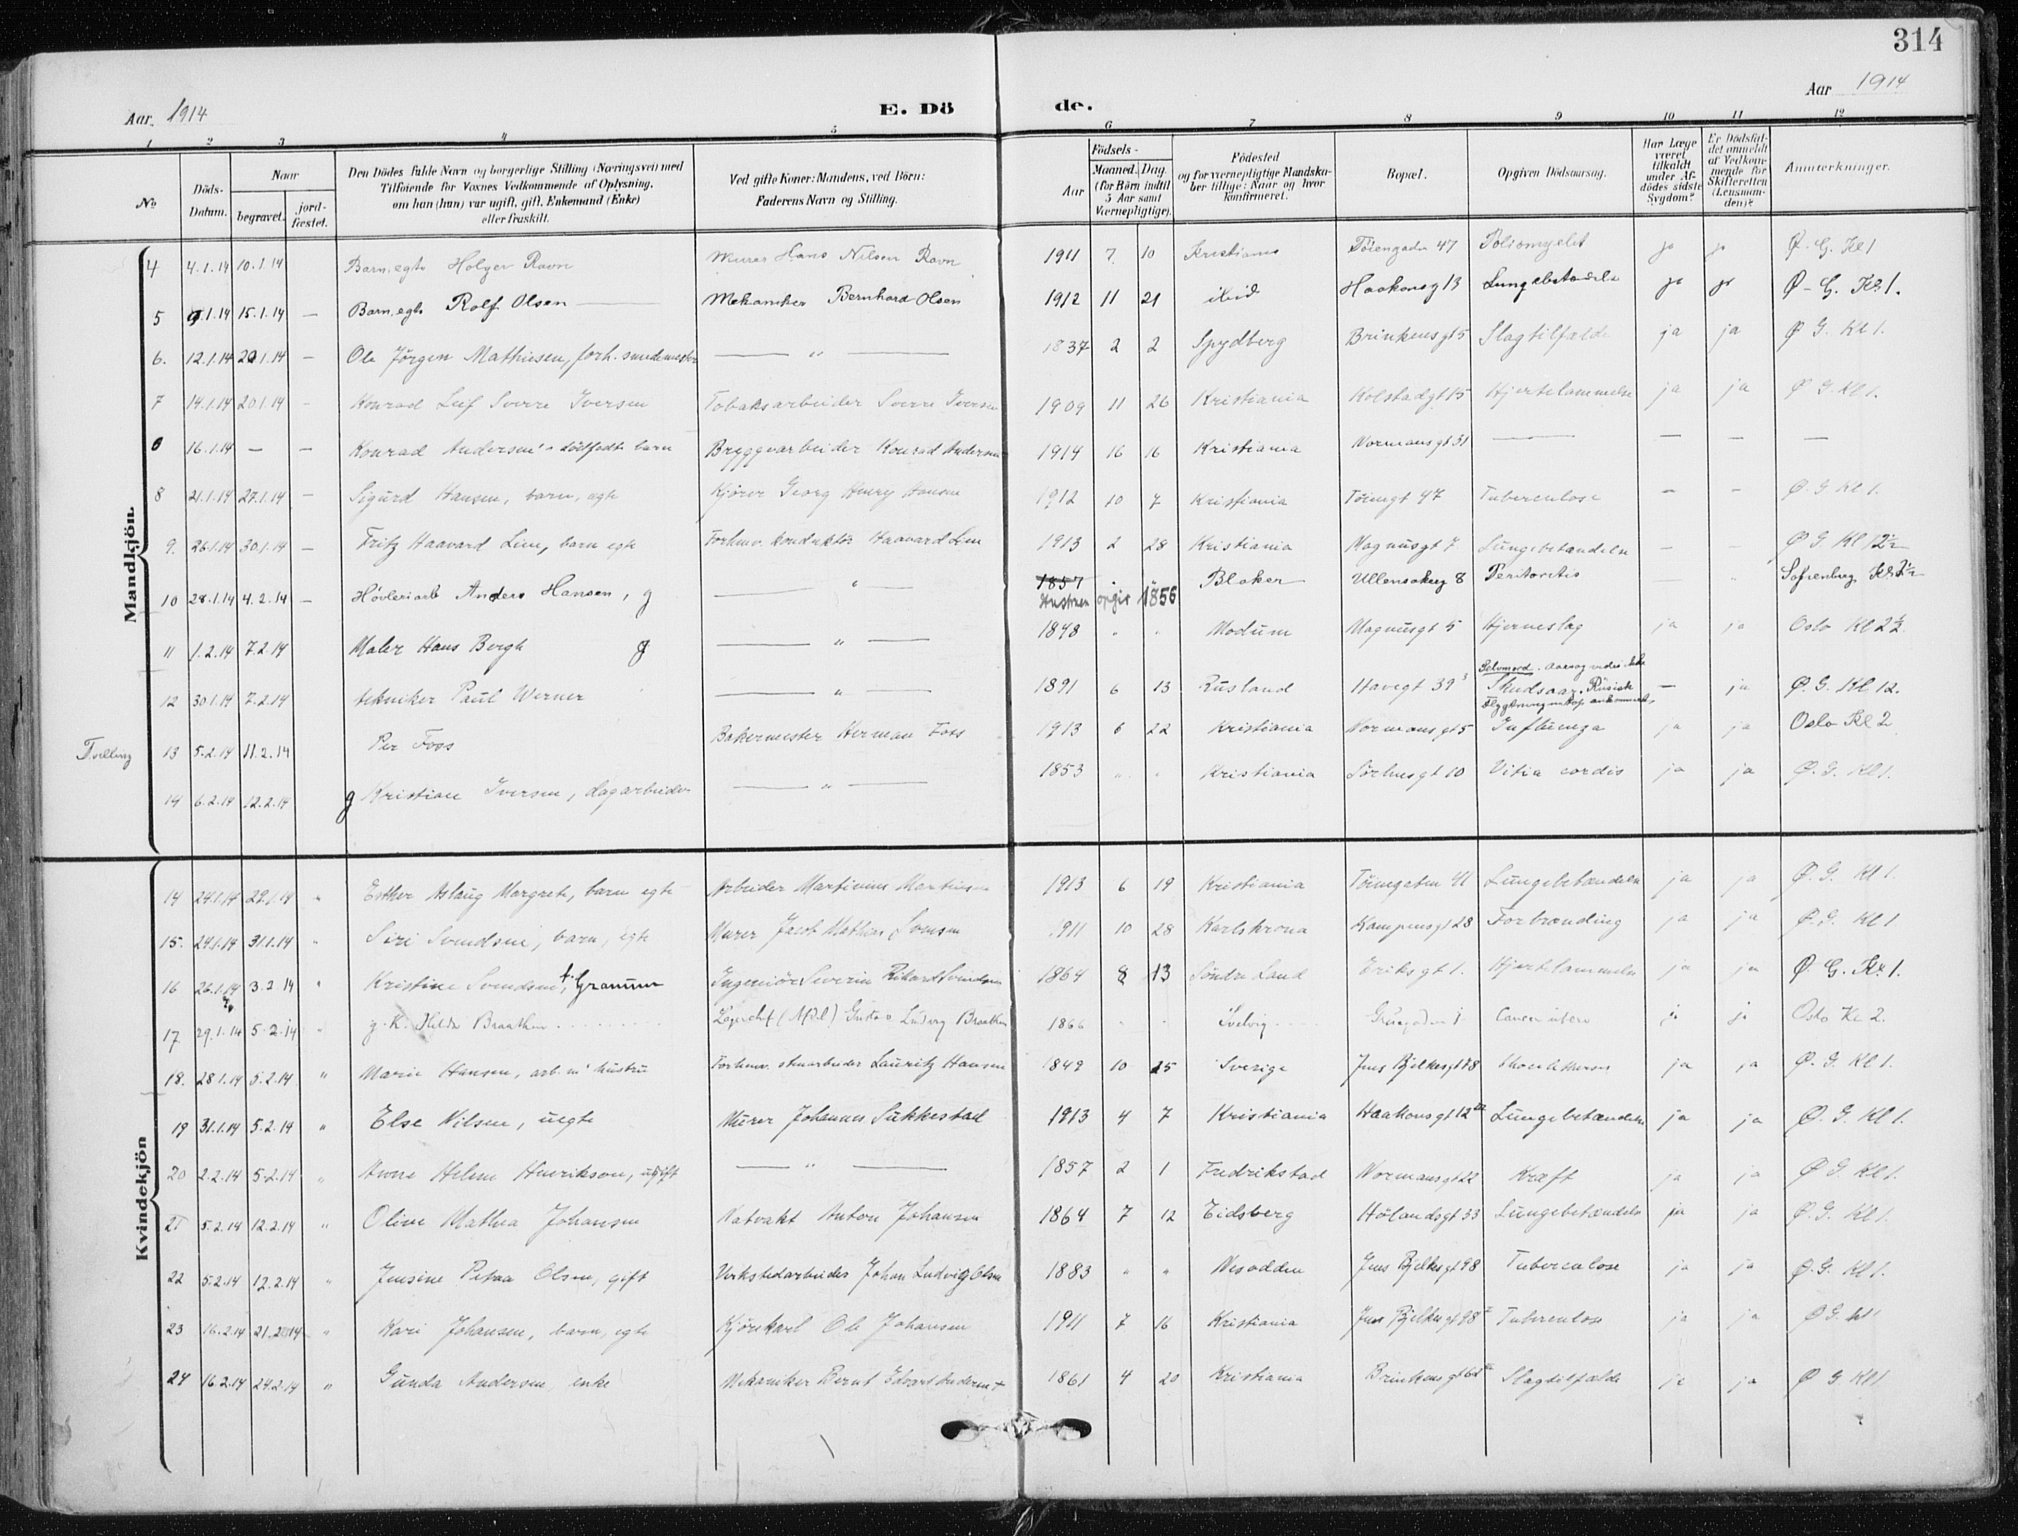 314
Aar 1914
E. Dö de.
Aar 1914
1 2 3 4 5 6 7 8 9 10 11 12
No
Döds-Datum.
Naar
begravet.
jord-fæstet.
Den Dödes fulde Navn og borgerlige Stilling (Næringsvei) med
Tilföiende for Voxnes Vedkommende af Oplysning,
om han (hun) var ugift, gift, Enkemand (Enke)
eller fraskilt.
Ved gifte Koner: Mandens, ved Börn:
Faderens Navn og Stilling.
Födsels-
Aar
Maaned. Dag
(for Börn indtil
5 Aar samt
Værnepligtige).
Födested
og for værnepligtige Mandska-
ber tillige: Naar og hvor
konfirmeret.
Bopæl.
Opgiven Dödsaarsag.
Har Læge
været
tilkaldt
under Af-
dödes sidste
Sygdom?
Er Dödsfal-
det anmeldt
af Vedkom-
mende for
Skifteretten
(Lensman-
den)?
Anmærkninger.
Mandkjön.
4 4.1.14 10.1.14 Barn, egte Holger Ravn Murer Hans Nilsen Ravn 1911 7 10 Kristiania Töiengaden 47 Poliomyelit ja ja Ø. G. Kl 1
5 9.1.14 15.1.14 — Barn, egte Rolf Olsen — Mekaniker Bernhard Olsen 1912 11 21 ibid Haakonsg 13 Lungebetændelse ja ja Ø - G. Kl. 1.
6. 12.1.14 20.1.14 — Ole Jørgen Mathiesen, forh. smedemester — " — 1837 2 2 Spydberg Brinkensgt 5 Slagtilfælde ja ja Ø G. Kl 1.
7 14.1.14 20.1.14 - Konrad Leif Sverre Iversen Tobaksarbeider Sverre Iversen 1909 11 26 Kristiania Kolstadgt 15 Hjertelammelse ja ja Ø G. Kl 1.
0 16.1.14 — — Konrad Andersen's dödfødt barn Bryggeriarbeider Konrad Andersen 1914 16 16 Kristiania Normansgt 31 — — — —
8 21.1.14 27.1.14 — Sigurd Hansen, barn, egte Kjörer Georg Henry Hansen 1912 10 7 Kristiania Töiengt 47 Tuberculose — — Ø. G Kl 1.
9. 26.1.14 30.1.14 — Fritz Haavard Lein, barn egte Forhenv. konduktör Haavard Lein 1913 2 28 Kristiania Magnusgt 7 Lungebetændelse — — Ø G Kl 12
10 28.1.14 4.2.14 — Hövleriarb Anders Hansen, g — " — 1857 Hustruen opgir 1856 Blaker Ullensakerg 8 Peritonitis — " Sofienberg
11 1.2.14 7.2.14 Maler Hans Bergh g — " — 1848 " " Modum Magnusgt 5 Hjerneslag ja ja Oslo Kl 2
12 30.1.14 7.2.14 tekniker Paul Werner — " — 1891 6 13 Rusland Havegt 39 Selvmord. Aarsag vides ikke Skudsaar. Russisk — ja Ø. G. Kl 12.
Tvilling 13 5.2.14 11.2.14 Per Foss Bakermester Herman Foss 1913 6 22 Kristiania Normansgt 5 Influenza ja ja Oslo Kl 2
14 6.2.14 12.2.14 g Kristian Iversen, dagarbeider — " — 1853 " " Kristiania Sörhusgt 10 Vitia cordis ja ja Ø. G. Kl 1.
Kvindekjön
14 24.1.14 29.1.14 " Esther Aslaug Margrete, barn egte Arbeider Martinius Martinsen 1913 6 19 Kristiania Töiengaten 41 Lungebetændelse ja ja Ø. G. Kl 1.
15. 29.1.14 31.1.14 " Siri Svendsen, barn, egte Murer Jacob Mathias Svensen 1911 10 28 Karlskrona Kampensgt 28 Forbrænding ja ja Ø. G. Kl 1
16 26.1.14 3.2 14 " Kristine Svendsen, f. Granum Ingeniör Severin Rikard Svendsen 1864 8 13 Söndre Land Eriksgt 1. Hjertelammelse ja ja Ø. G. Kl. 1.
17 29.1.14 5.2.14 " g. K. Hilda Braathen Gustav Ludvig Braathen 1866 Svelvig Cancer uteri ja ja Oslo Kl 2.
18. 28.1.14 5.2.14 " Marie Hansen, arb. m' hustru Forhenv. stenarbeider Lauritz Hansen 1849 10 25 Sverige Jens Bjelkesgt ja ja Ø. G. Kl 1.
19 31.1.14 5.2.14 " Else Nilsen, uegte Murer Johannes Sukkestad 1913 4 7 Kristiania Haakonsgt 12 Lungebetændelse ja ja Ø. G. Kl 1.
20 2.2.14 5.2.14 " Anne Helene Henriksen, ugift — " — 1857 2 1 Fredrikstad Normansgt 22 Kræft ja ja Ø G. Kl 1.
21 5.2.14 12.2.14 " Olive Mathea Johansen Natvakt Anton Johansen 1864 7 12 Eidsberg Hölandsgt 33 Lungebetændelse ja ja Ø. G. Kl 1.
22 5.2.14 12.2.14 " Jensine Petra Olsen, gift Verkstedarbeider Johan Ludvig Olsen 1883 " " Nesodden Jens Bjelkesgt 98 Tuberculose ja ja Ø. G. Kl 1.
23 16.2.14 21.2.14 " Kari Johansen, barn, egte Kjörekarl Ole Johansen 1911 7 16 Kristiania Jens Bjelkesgt 98 Tuberculose ja ja Ø G. Kl 1
24 16.2.14 24.2.14 " Gunda Andersen enke Mekaniker Bernt Edvart Andersen + 1861 4 20 Kristiania Brinkensgt Slagtilfælde ja ja Ø G Kl 1